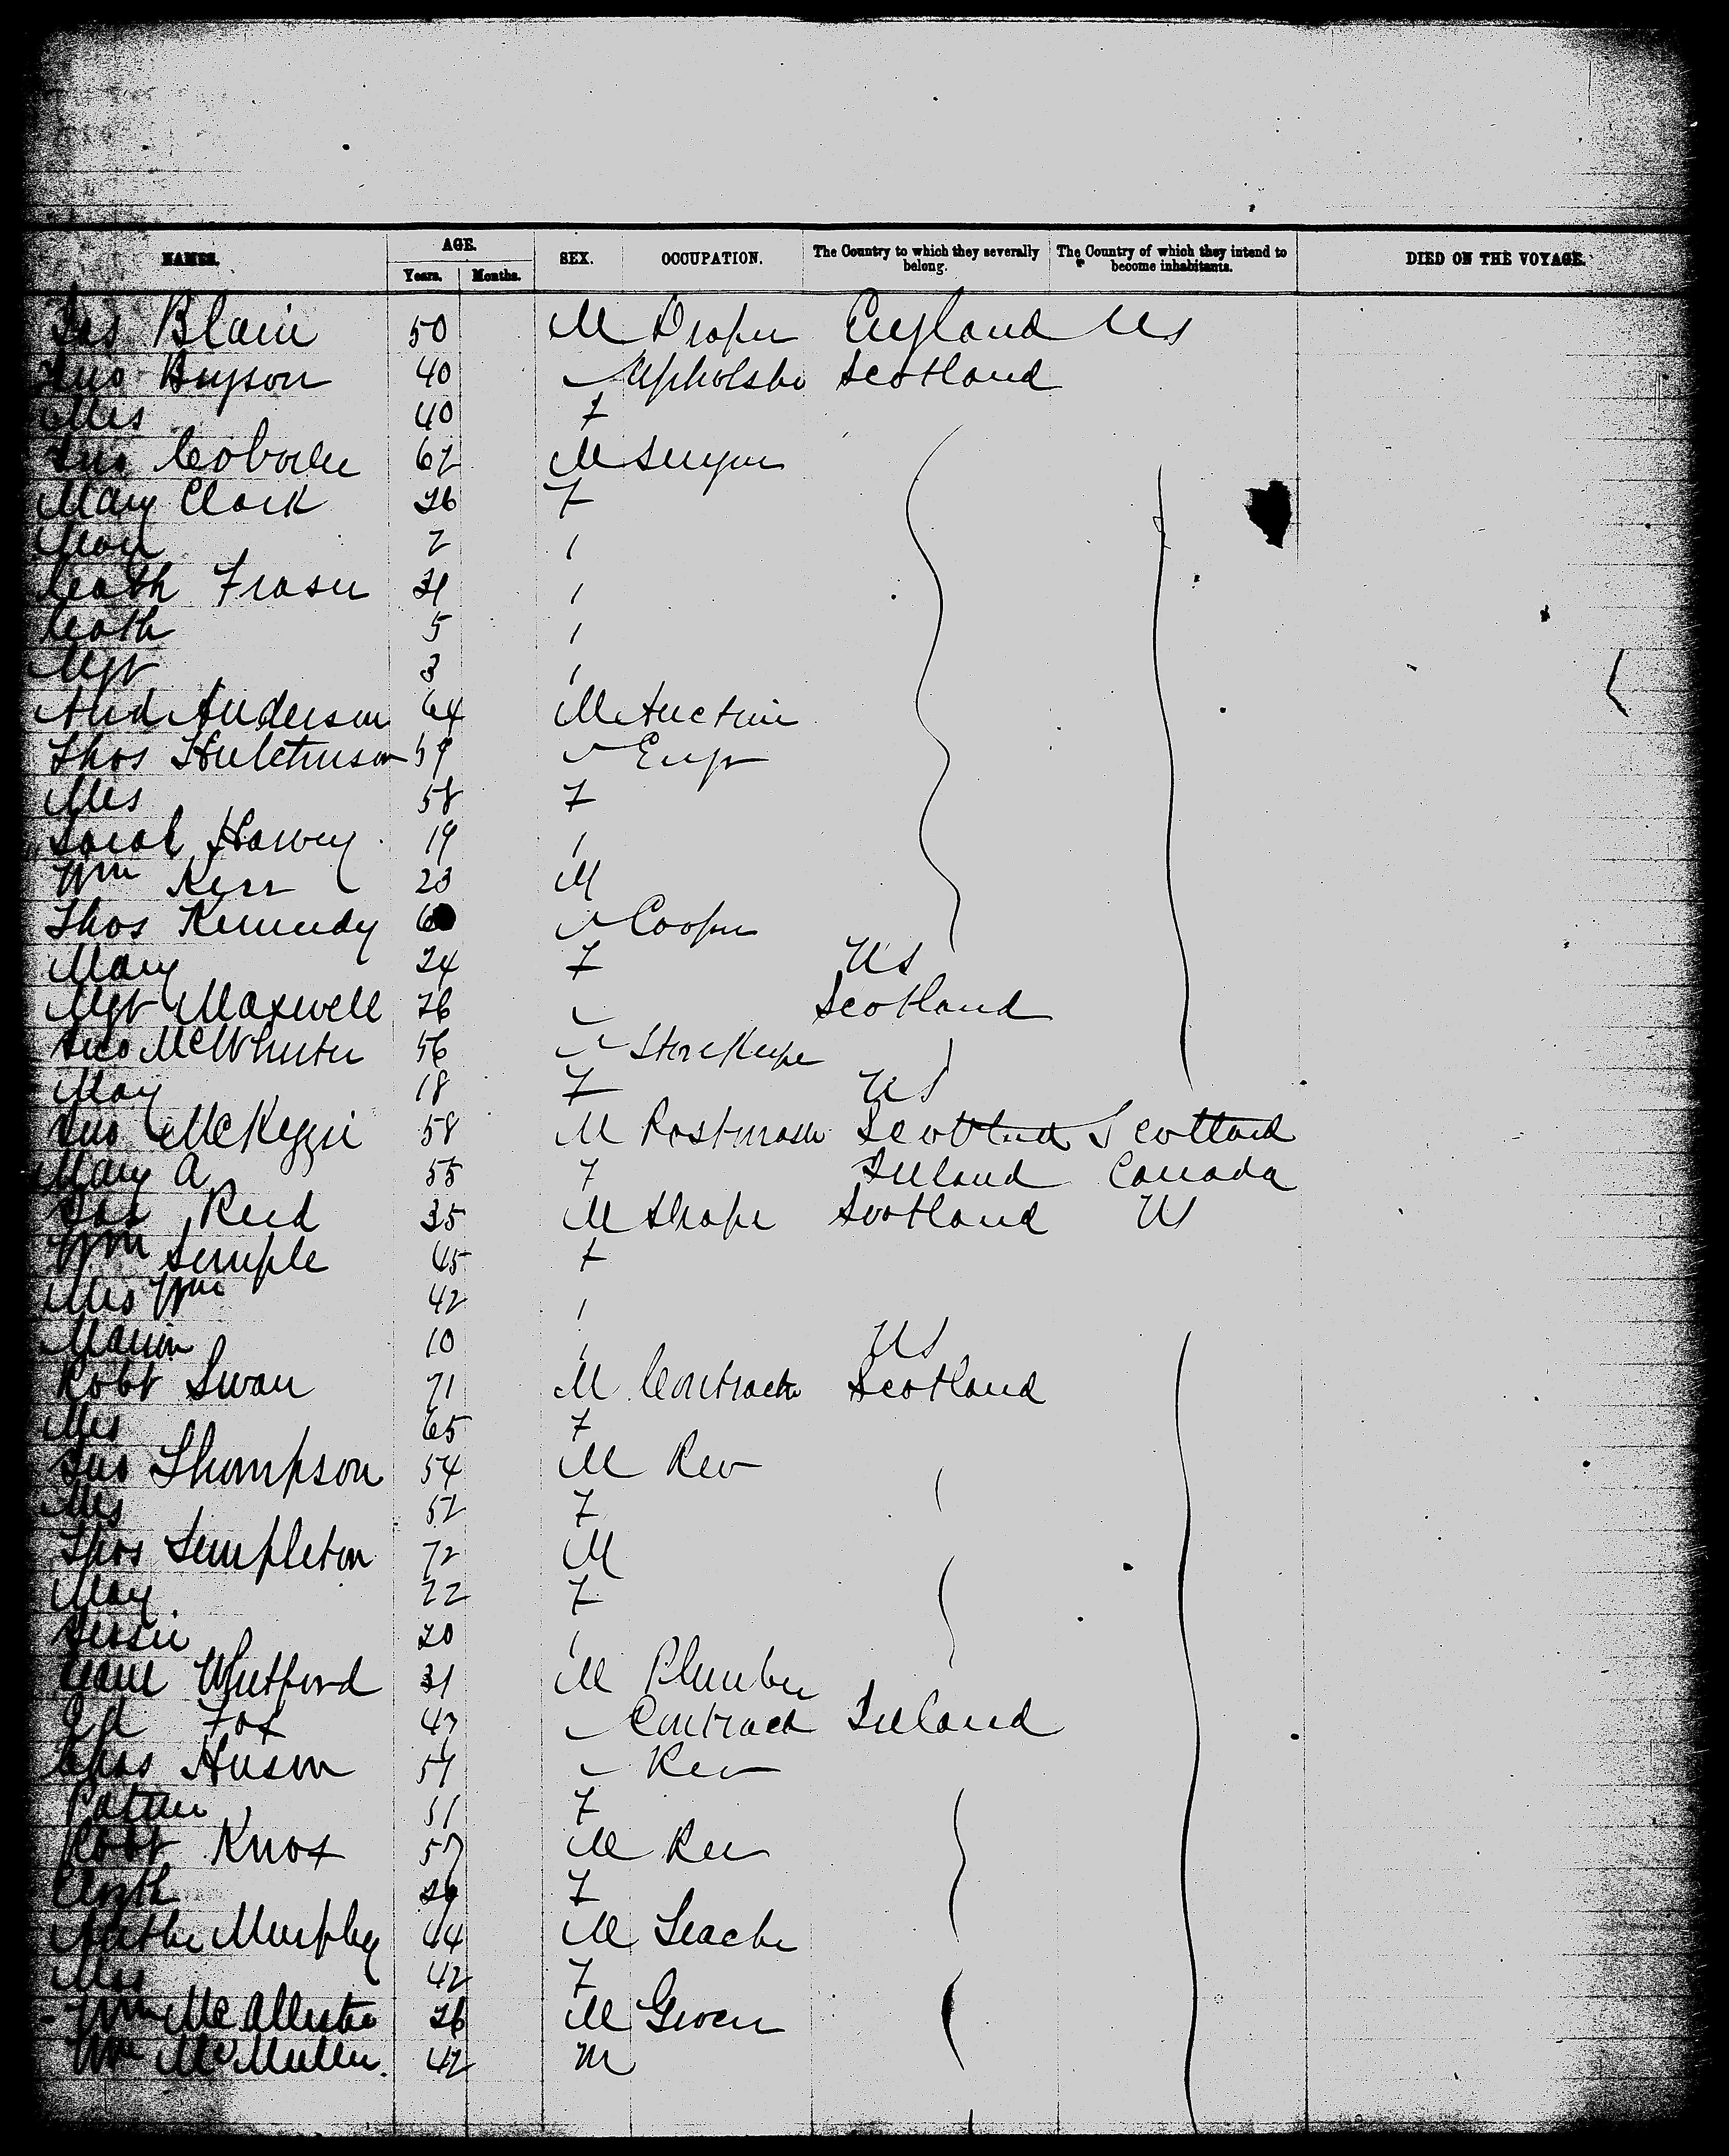 NAMES. AGE. SEX. OCCUPATION. The Country to which they severally belong. The Country of which they intend to become inhabitants. DIED ON THE VOYAGE.
Years. Months.
Jas Blain 50 M Draper England US
Jno Bryson 40 Upholste Scotland
Mrs 40 F
Jno 62 M
Mary Clark 26 F
2
Cath Fraser
Cath 5
Mgt 3
Anderson 64 M
Thos Hutchinson 59 Engr
Mrs 58 F
Sarah Harvey 19
Wm Kerr 23 M
Thos Kennedy Cooper
Mary 24 F US
Mgt Maxwell 26 Scotland
Jno McWhirter 56 StoreKeepe
May 18 F US
Jno McKenzie 58 M Postmaste Scotland Scotland
Mary A 55 F Ireland Canada
Jas Reid 35 M Scotland US
Wm Semple 45
Mrs Wm 42
Marion 10 US
Robt Swan 71 M Contracto Scotland
Mrs 65 F
Jno Thompson 54 M Rev
Mrs 52 F
Thos Templeton 72 M
May 22 F
Jessie 20
Whitford 31 M Plumber
Ed Fox 47 Contract Ireland
Chas Huson Rev
51 F
Robt Knox 57 M Rev
F
Arthur Murphy 44 M Teache
Mrs 42 F
Wm McAlliste 26 M Grocer
Wm McMullen 42 M